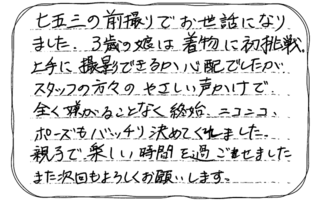 七五三の前撮りでお世話になり
ました。3歳の娘は着物に初挑戦。
上手に撮影できるか心配でしたが
スタッフの方々のやさしい声かけで
全く嫌がることなく終始ニコニコ、
ポーズもバッチリ決めてくれました。
親子で楽しい時間を過ごせました
また次回もよろしくお願いします。